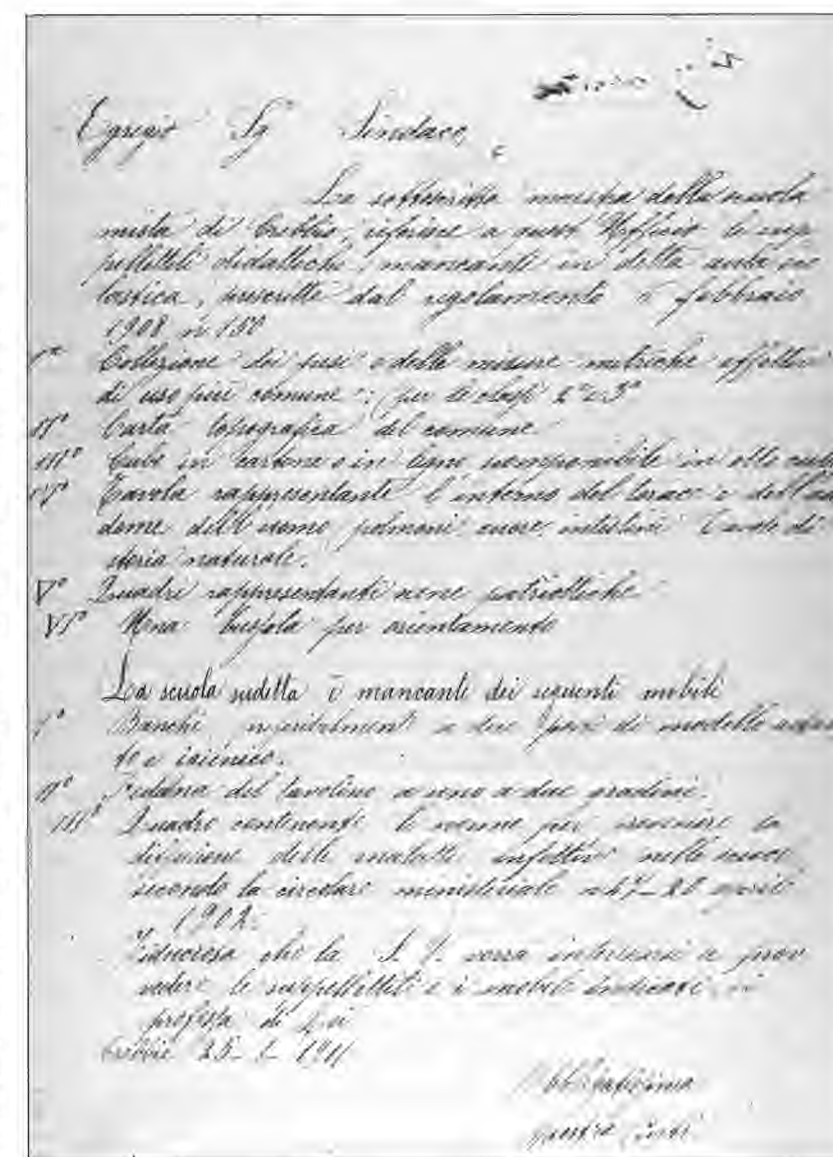 Egregio Sg Sindaco,
La sottoscritta maestra della scuola
mista di Crebbio, riferisce a questo Ufficio le sup
pellettili didattiche, mancanti in detta aula sco
lastica, prescritte dal regolamento 6 febbraio
1908 n 150
I° Collezione dei pesi e delle misure metriche effettive
di uso più comune: (per le classi 2ª e 3ª
II° Carta topografica del comune
III° Cubo in cartone o in legno scomponibile in otto
IV° Tavola rappresentante l'interno del torace e dell'ad
dome dell'uomo, polmoni cuore, intestini Tavole di
storia naturale.
V° Quadri rappresentanti scene patriottiche
VI° Una bussola per orientamento
La scuola sudetta è mancante dei seguenti mobili
I° Banchi, a due posti di modello
to e igienico.
II° Pedana del tavolino a uno a due gradini.
III° Quadro contenente le norme per
diffusione delle malattie infettive nelle
secondo la circolare ministeriale aprile
1902.
Fiduciosa che la S. V. vorrà a prov
vedere le suppellettili e i mobili indicati, si
professa di Lei
Crebbio 25 1911
Obbligatissima
maestra